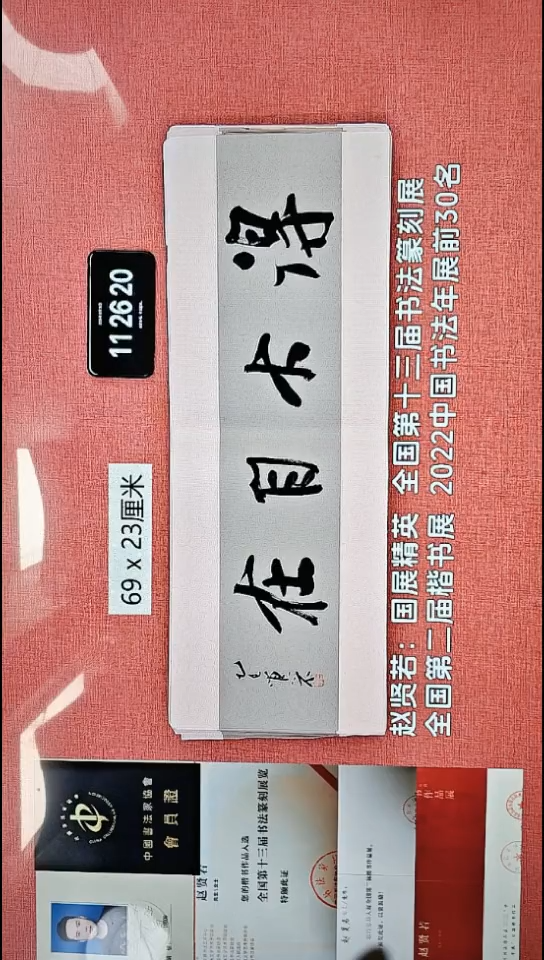 11 26 20
69 x 23厘米
得大自在
赵贤若：国展精英 全国第十三届书法篆刻展
全国第二届楷书展 2022中国书法年展前30名
中國書法家協會
會員證
赵贤若
您的楷书作品入选
全国第十三届书法篆刻展览
特颁此证
赵贤若